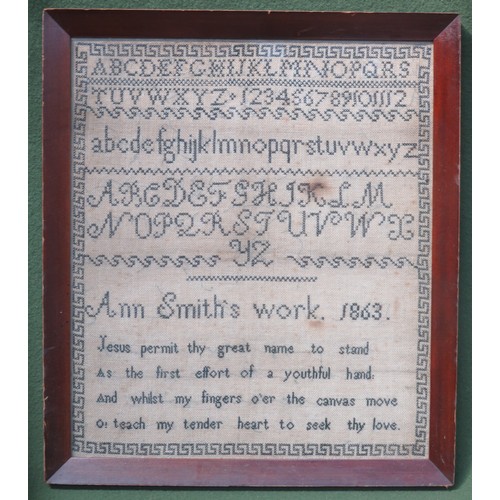 ABCDEFGHIJKLMNOPQRS
TUVWXYZ 123456789101112
abcdefghijklmnopqrstuvwxyz
ABCDEFGHIJKLM
NOPQRSTUVWX
YZ
Ann Smith's work. 1863.
Jesus permit thy great name to stand
As the first effort of a youthful hand;
And whilst my fingers o'er the canvas move
O! teach my tender heart to seek thy love.